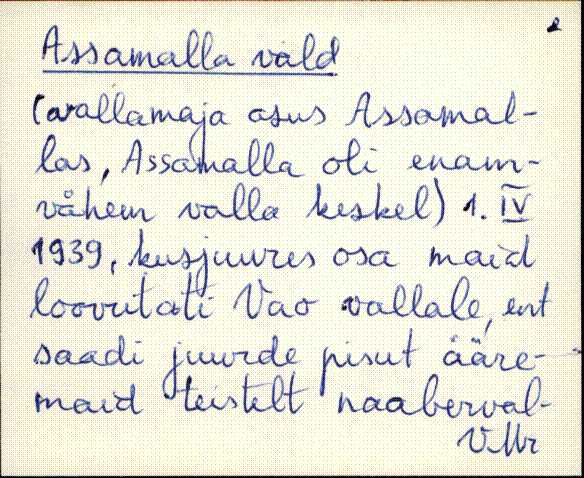 2
Assamalla vald
(vallamaja asus Assamal-
las, Assamalla oli enam-
vähem valla keskel) 1. IV
1939, kusjuures osa maid
loovutati Vao vallale, ent
saadi juurde pisut ääre-
maid teistelt naaberval-
V.Mr